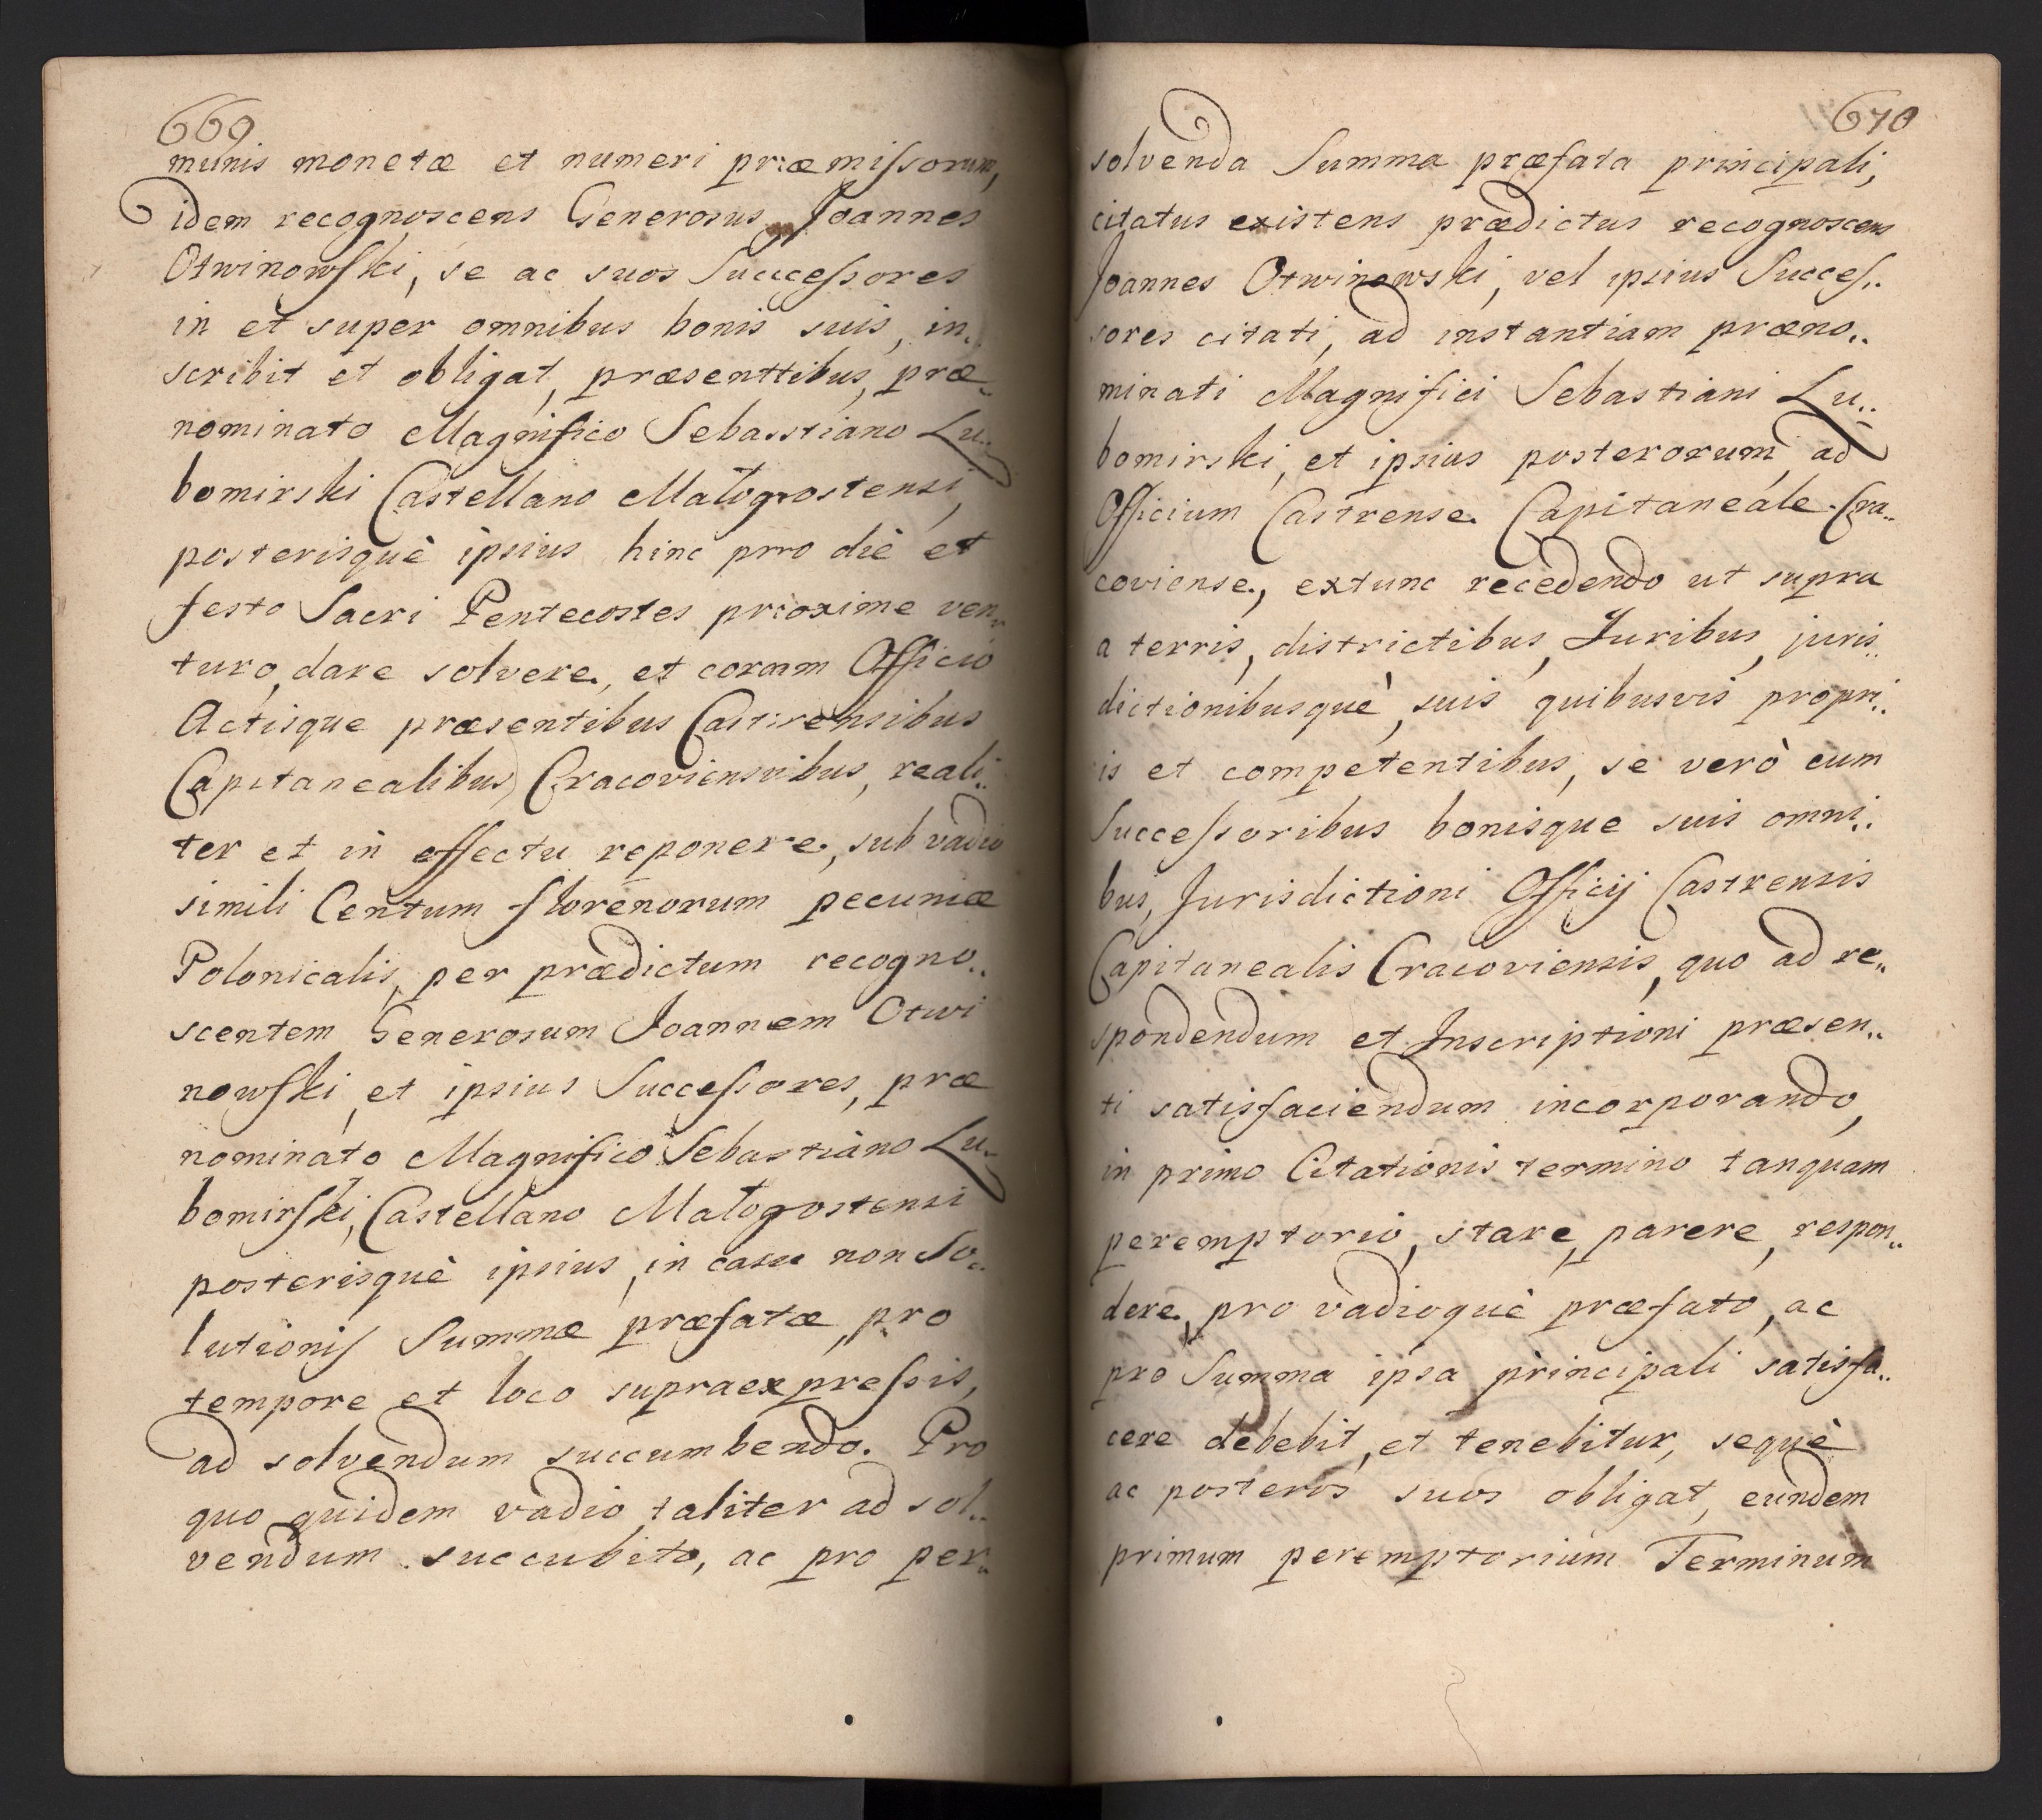 669
munis monetæ et numeri præmiſsorum,
idem recognoscens Generosus Joannes
Otwinowſki, se ac suos Succceſsores
in et super omnibus bonis suis, in„
scribit et obligat, præsenttibus, præ„
nominato Magnifico Sebasstiano Lu„
bomirski Castellano Małogostensi,
posterisquè ipsius hinc pro diè et
festo Sacri Pentecostes proxime ven„
turo, dare solvere, et coram Officio
Actisque præsentibus Castrensibus
Capitanealibus, Cracoviensibus, reali„
ter et in effectu reponere, sub vadio
simili Centum florenorum pecuniæ
Polonicalis, per prædictum recogno„
scentem Generosum Joannem Otwi
nowſki, et ipsius Succeſsores, præ
nominato Magnifico Sebastiano Lu„
bomirſki, Castellano Małogostensi
posterisquè ipsius, in casu non So„
lutioniſ Summæ præfatæ, pro
tempore et loco supraexpreſsis,
ad solvendum succumbendo. Pro
quo quidem vadio, taliter ad sol„
vendum succubito, ac pro per„
670
solvenda Summa præfata principali,
citatus existens prædictus recognoscens
Joannes Otwinowski, vel ipsius Succeſ„
sores citati, ad instantiam præno„
minati Magnifici Sebastiani Lu„
bomirski, et ipsius posterorum, ad
Officium Castrense Capitaneale Cra„
coviense, extunc recedendo ut supra
a terris, districtibus, Juribus, juris„
dictionibusquè, suis quibusvis propri„
is et competentibus, se verò cum
Succeſsoribus bonisque suis omni„
bus, Jurisdictioni Officij Castrensis
Capitanealis Cracoviensis, quo ad re„
spondendum et Inscriptioni præsen„
ti satisfaciendum incorporando,
in primo Citationis termino tanquam
peremptorio, stare, parere, respon„
dere, pro vadioquè præfato, ac
pro Summa ipsa principali satisfa„
cere debebit, et tenebitur, sequè
ac posteros suos obligat, eundem
primum peremptorium Terminum